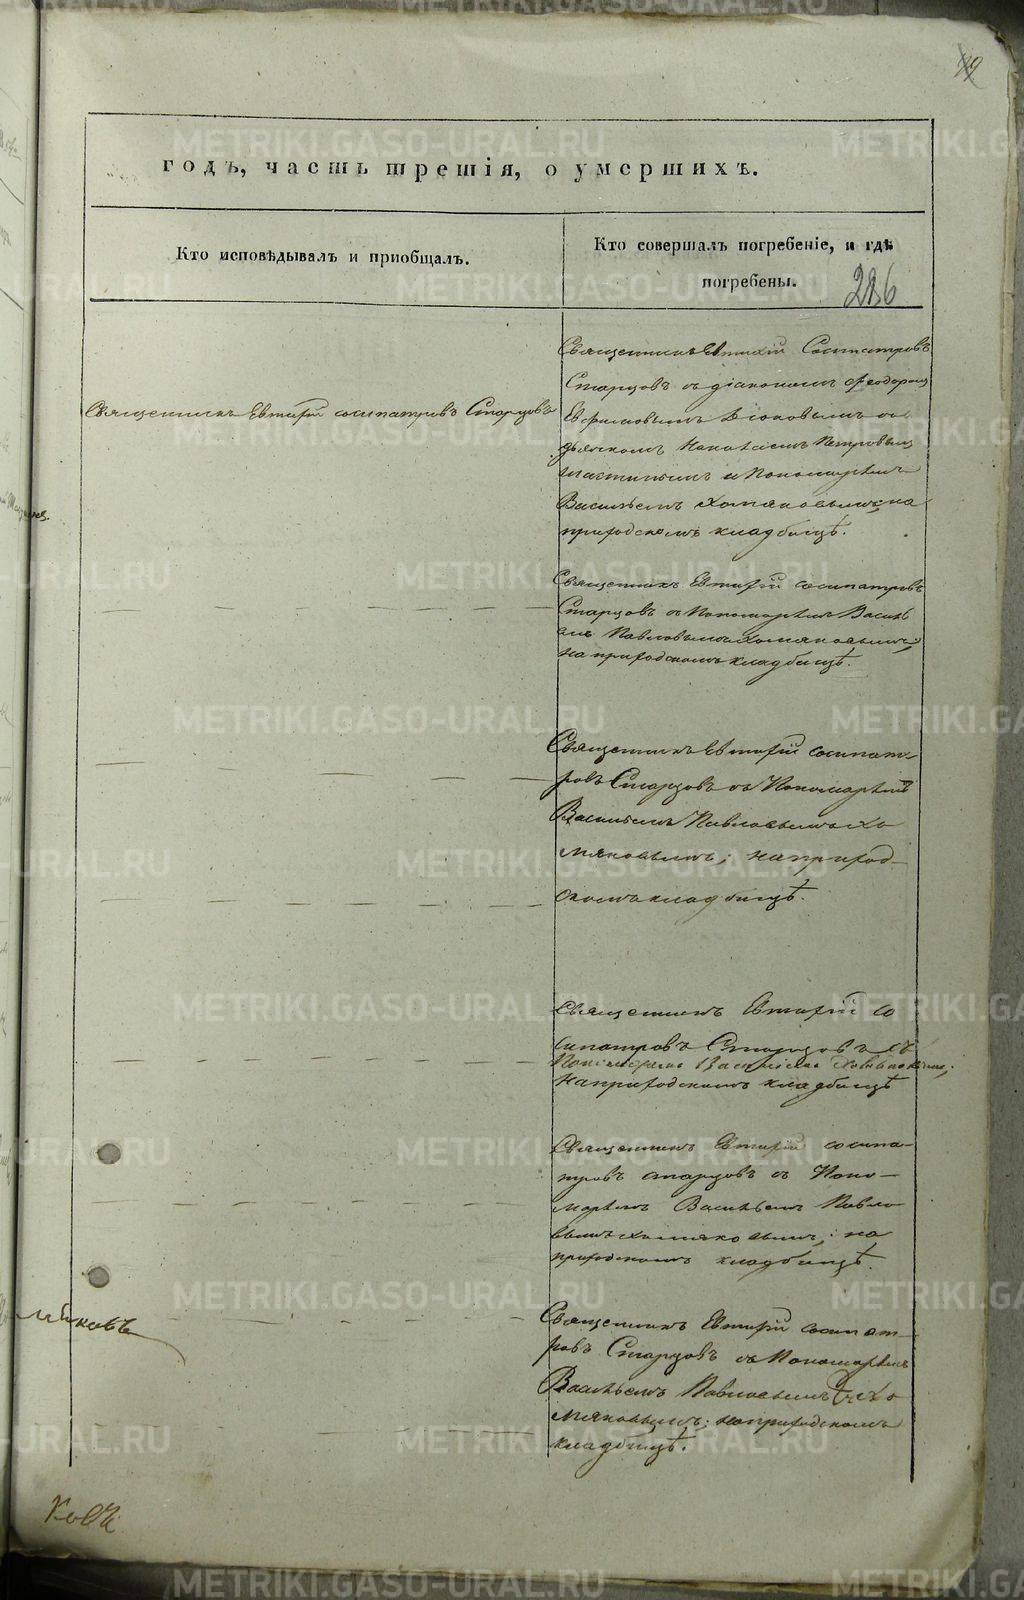 годъ, часть третія, о умершихъ.
Кто исповѣдывалъ и приобщалъ.
Кто совершалъ погребеніе, и гдѣ
погребены.
286
Священникъ Евтихій Сосипатровъ
Старцовъ съ діакономъ Феодоромъ
дьячкомъ Петровымъ
и Пономаремъ
Васильемъ Хомяковымъ; на
приходскомъ кладбищѣ.
Священникъ Евтихій сосипатровъ Старцовъ
Священникъ Евтихій сосипатровъ
Старцовъ съ Пономаремъ Василь
емъ Павловымъ Хомяковымъ;
на приходскомъ кладбищѣ.
Священникъ Евтихій сосипат-
ровъ Старцовъ съ Пономаремъ
Васильемъ Павловымъ Хо
мяковымъ; на приход-
скомъ кладбищѣ.
Священникъ Евтихій со
сипатровъ Старцовъ съ
Пономаремъ Васильемъ Хомяковымъ;
на приходскомъ кладбищѣ
Священникъ Евтихій сосипа-
тровъ старцовъ съ Поно-
маремъ Васильемъ Павло
вымъ хомяковымъ; на
приходскомъ кладбищѣ.
Священникъ Евтихій сосипат-
ровъ Старцовъ съ Пономаремъ
Васильемъ Павловымъ Хо
мяковымъ; на приходскомъ
кладбищѣ.
METRIKI.GASO-URAL.RU